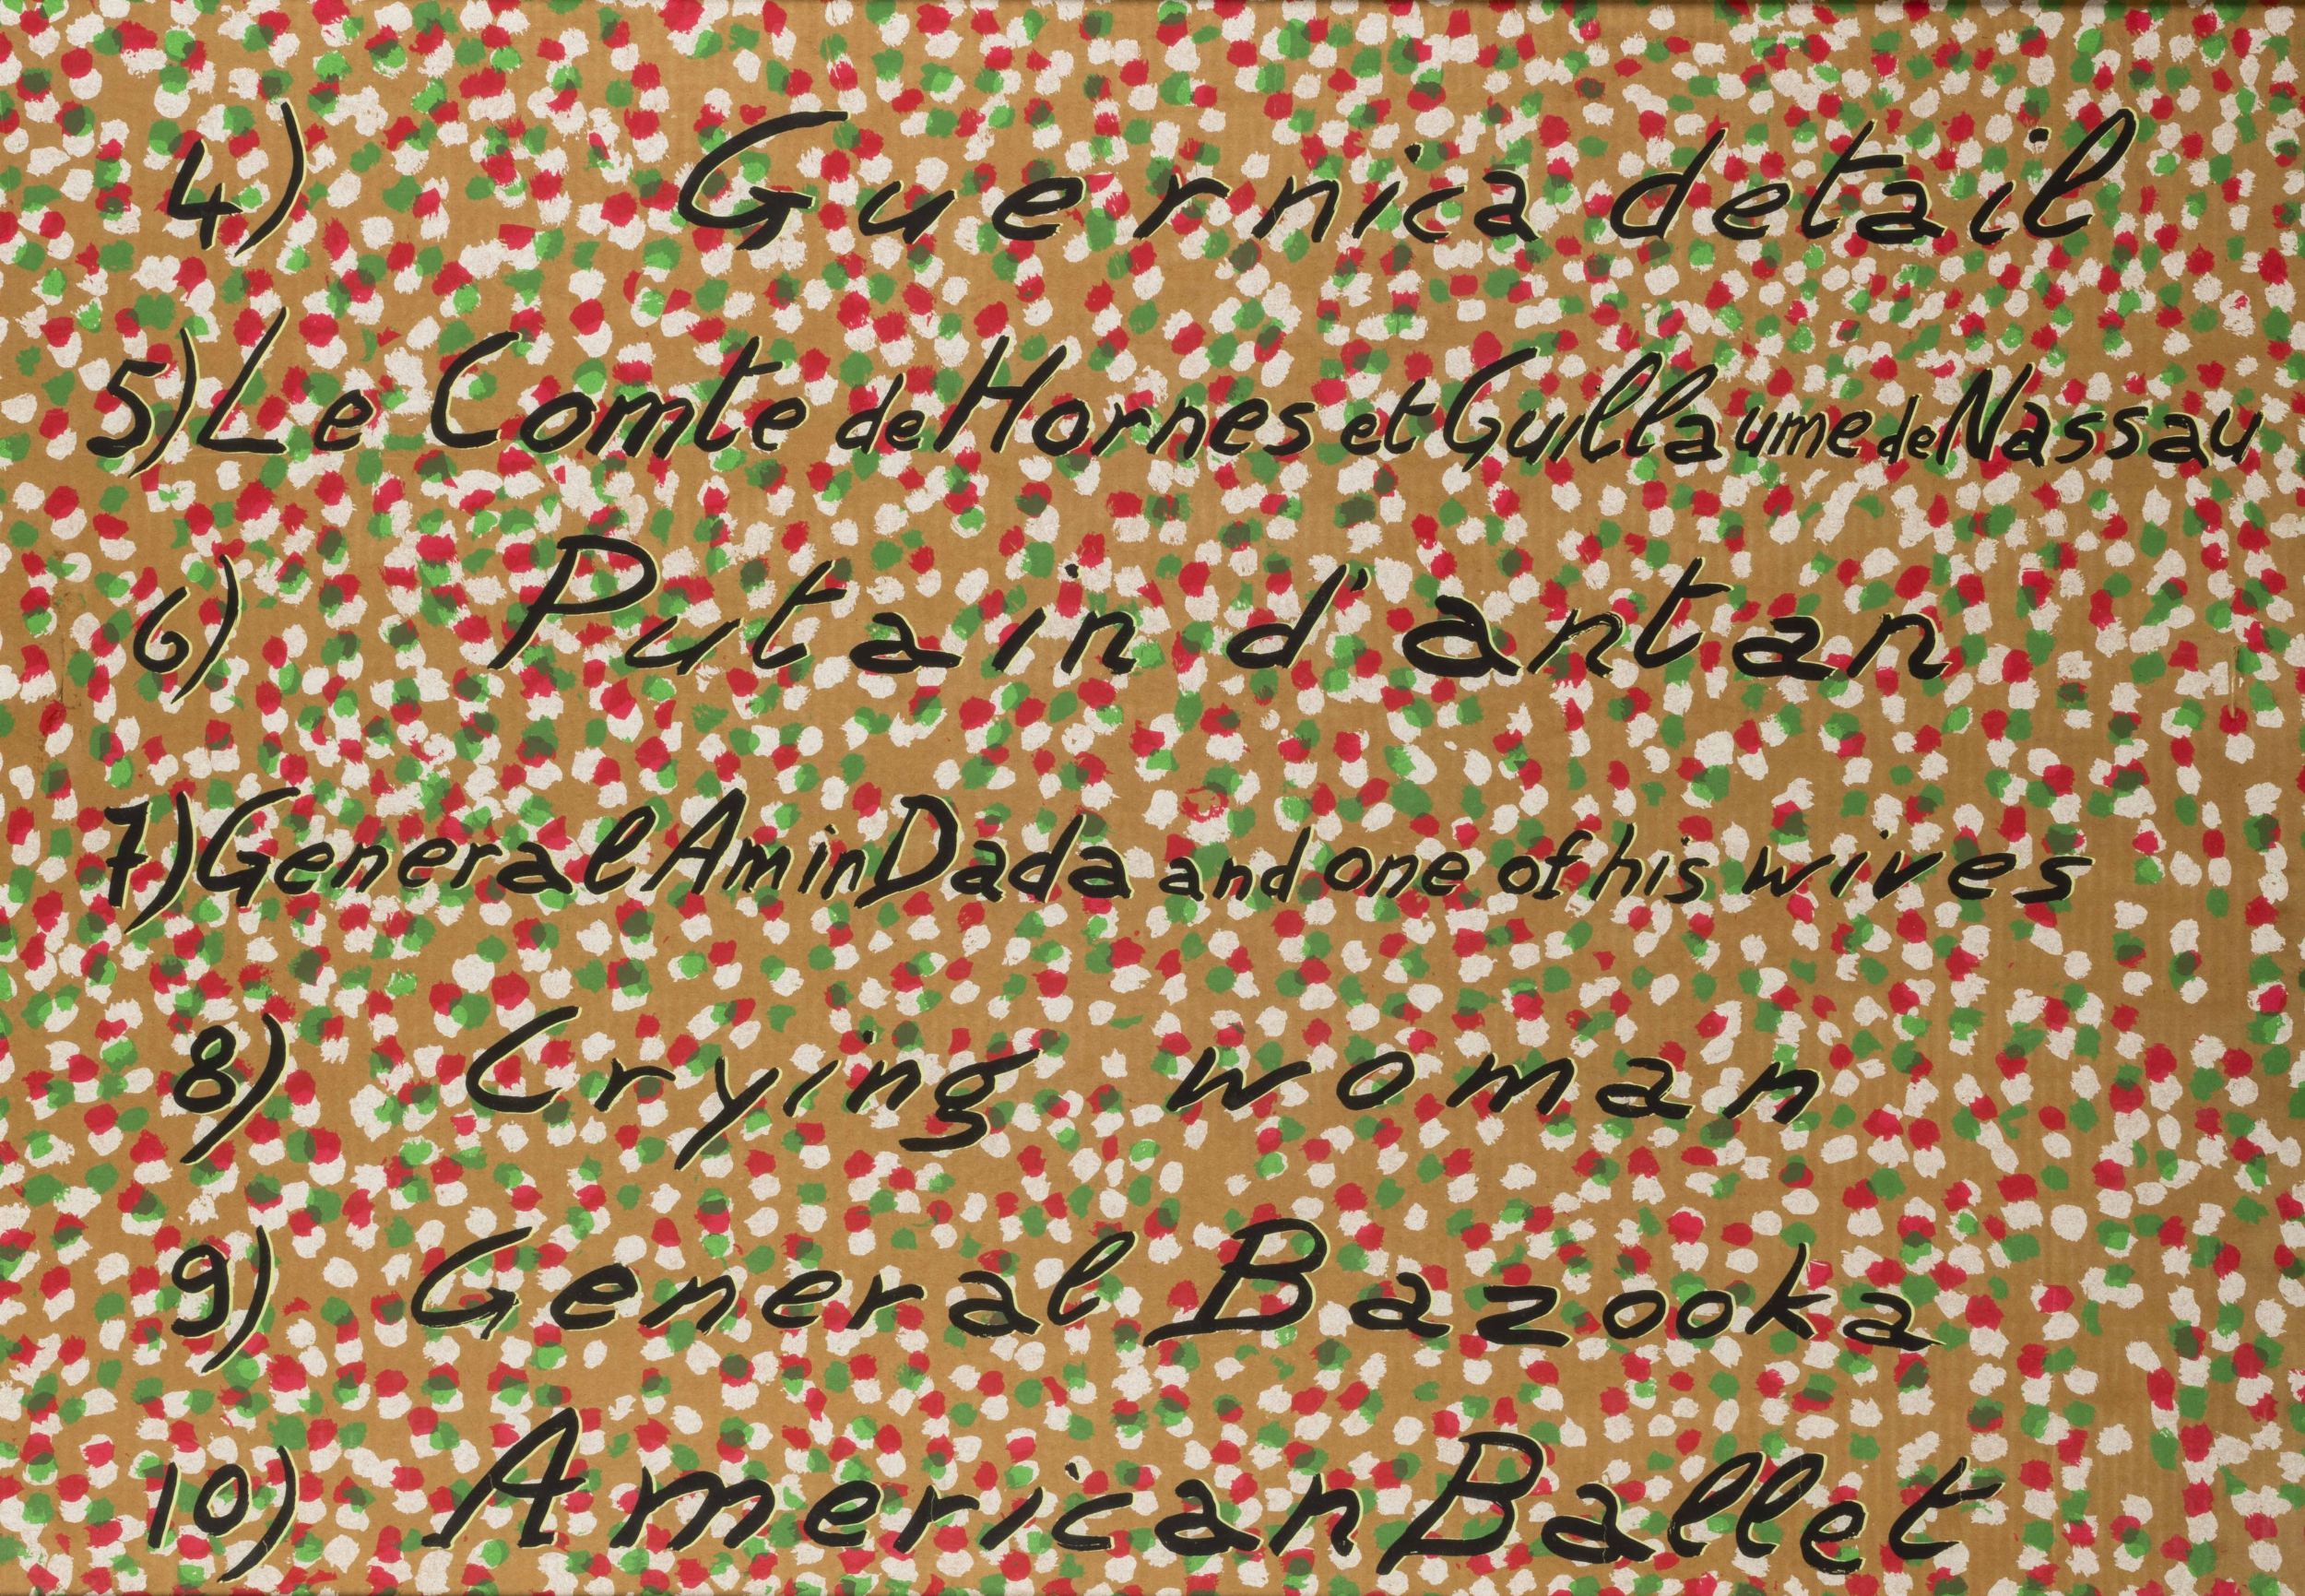 4) Guernica detail
5) Le Comte de Hornes et Guillaume de Nassau
6) Putain d'antan
7) General Amin Dada and one of his wives
8) Crying woman
9) General Bazooka
10) American Ballet